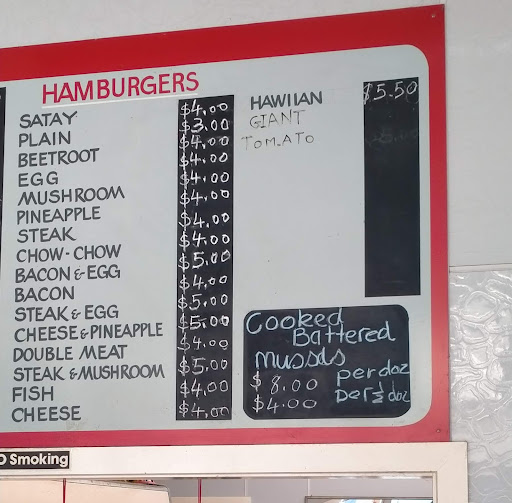 HAMBURGERS
SATAY $4.00
PLAIN $3.00
BEETROOT $4.00
EGG $4.00
MUSHROOM $4.00
PINEAPPLE $4.00
STEAK $4.00
CHOW-CHOW $4.00
BACON & EGG $5.00
BACON $4.00
STEAK & EGG $5.00
CHEESE & PINEAPPLE $5.00
DOUBLE MEAT $4.00
STEAK & MUSHROOM $5.00
FISH $4.00
CHEESE $4.00
HAWIIAN $5.50
GIANT
TOMATO
Cooked
Battered
mussels
$8.00 per doz
$4.00 per ½ doz
O Smoking